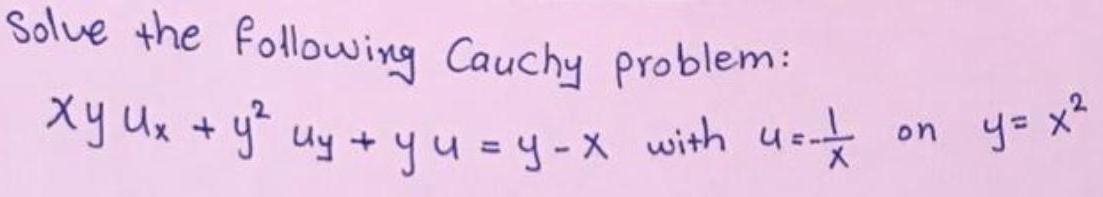 Solve the following Cauchy problem:
xy uₓ + y² u_y + y u = y - x with u = -1/x on y = x²